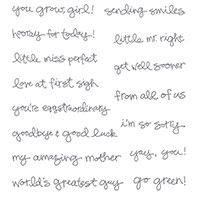 you grow, girl!
sending smiles
hooray for today!
little mr right
little miss perfect
get well sooner
love at first sigh
from all of us
you're eggstraordinary
i'm so sorry
goodbye & good luck
yay, you!
my amazing mother
world's greatest guy
go green!